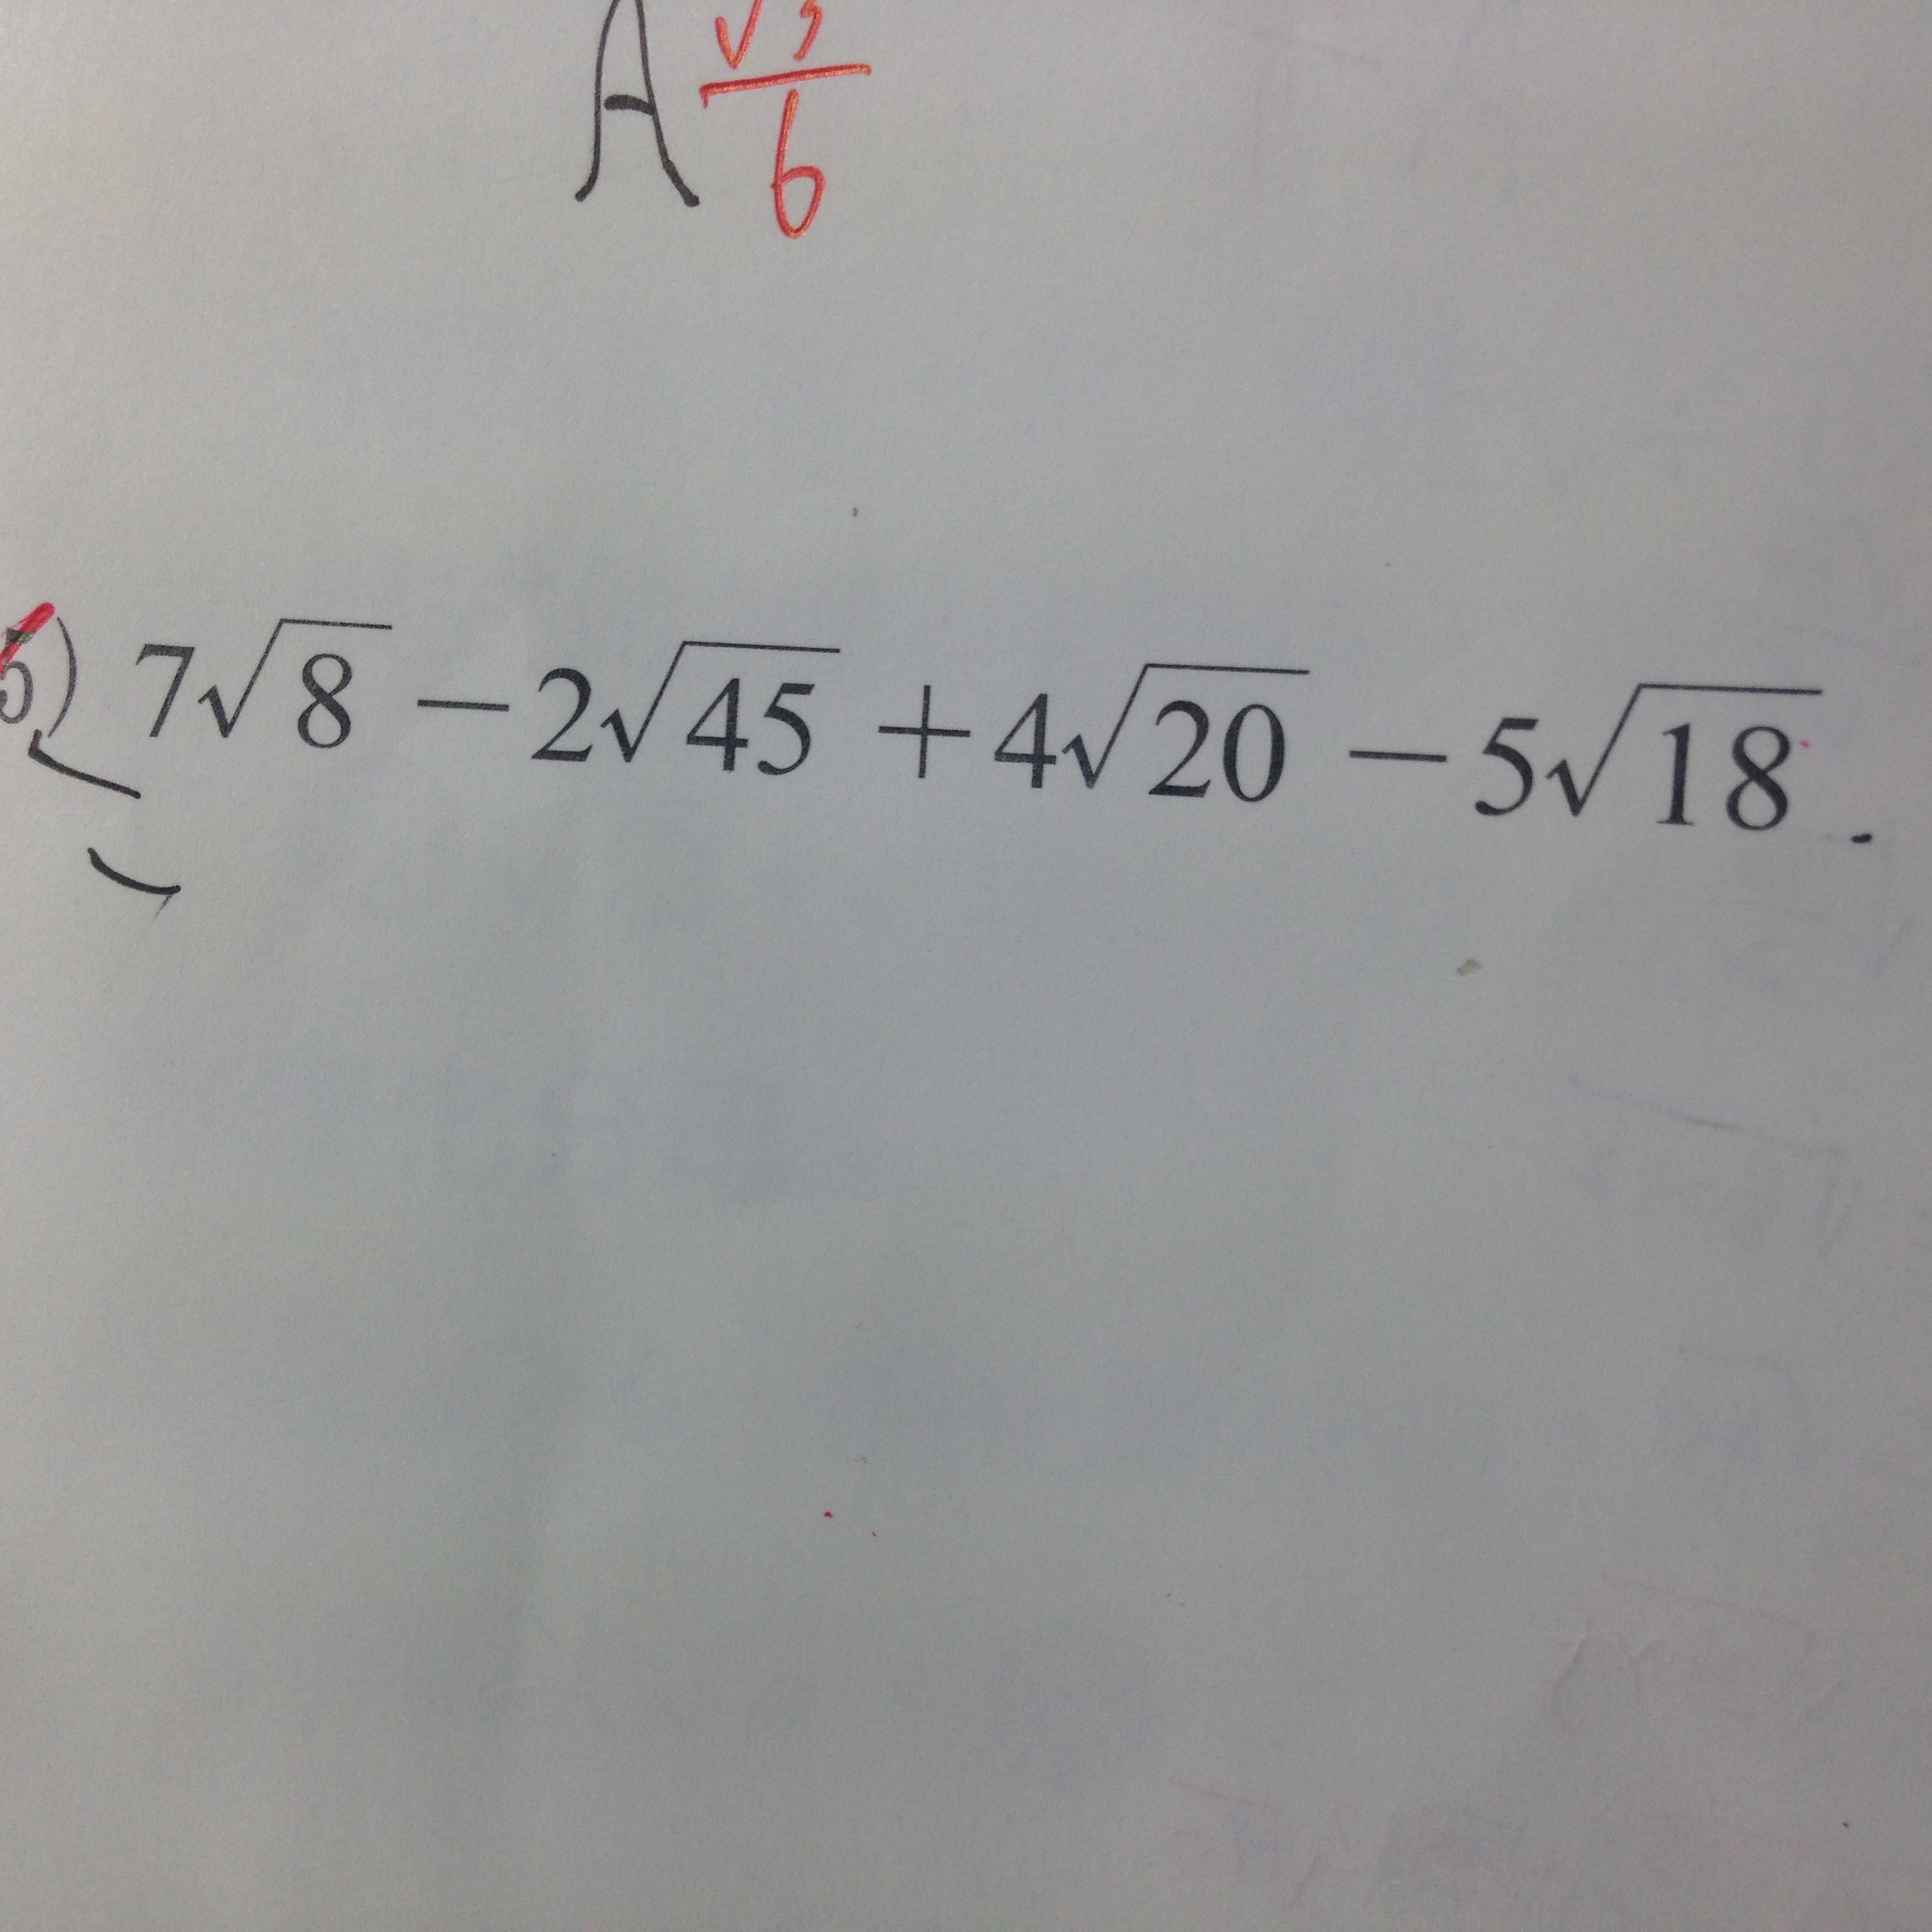 A √3/6
5) 7√8 − 2√45 + 4√20 − 5√18